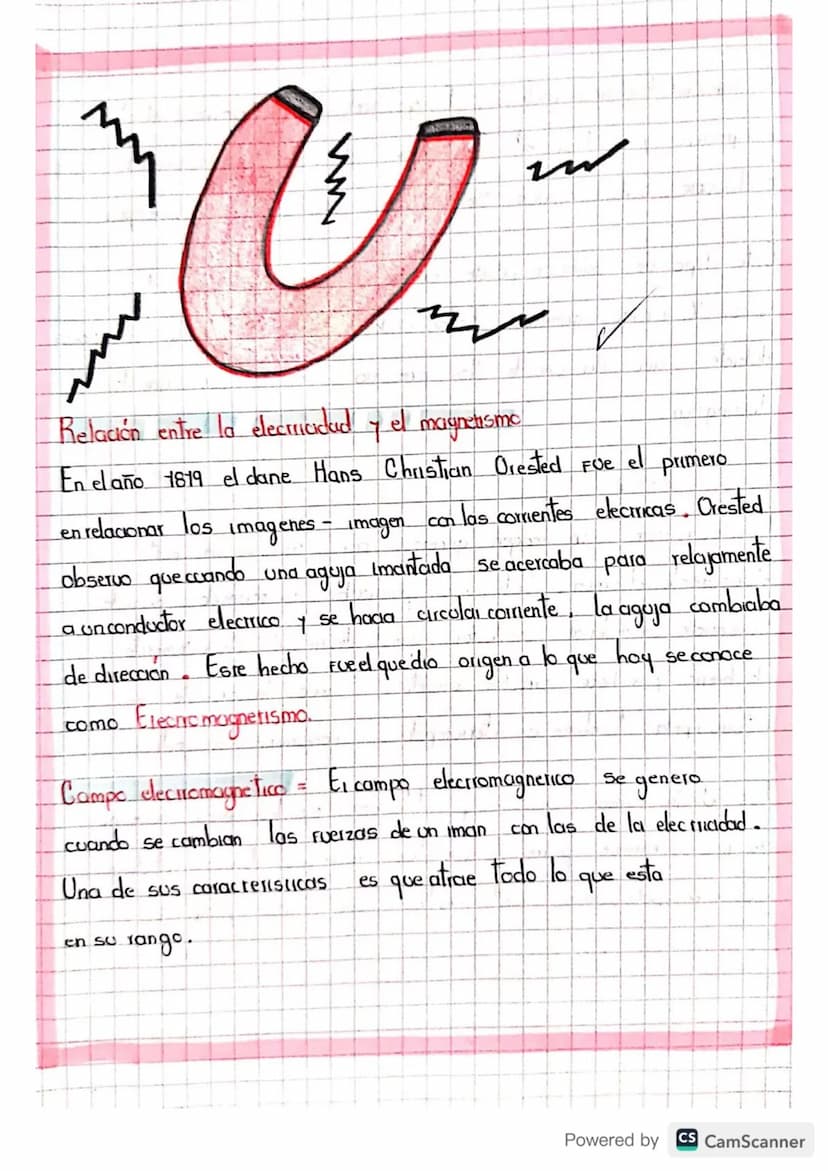 Relación entre la electricidad y el magnetismo
En el año 1819 el dane Hans Christian Orested fue el primero
en relacionar los imagenes - imagen con las corrientes electricas. Orested
observo que cuando una aguja imantada se acercaba para relajamente
a un conductor electrico y se hacia circular corriente, la aguja cambiaba
de dirección. Este hecho fue el que dio origen a lo que hoy se conoce
como Electromagnetismo.
Campo electromagnetico = El campo electromagnetico se genero
cuando se cambian las fuerzas de un iman con las de la electricidad.
Una de sus caracteristicas es que atrae todo lo que esta
en su rango.
Powered by CS CamScanner